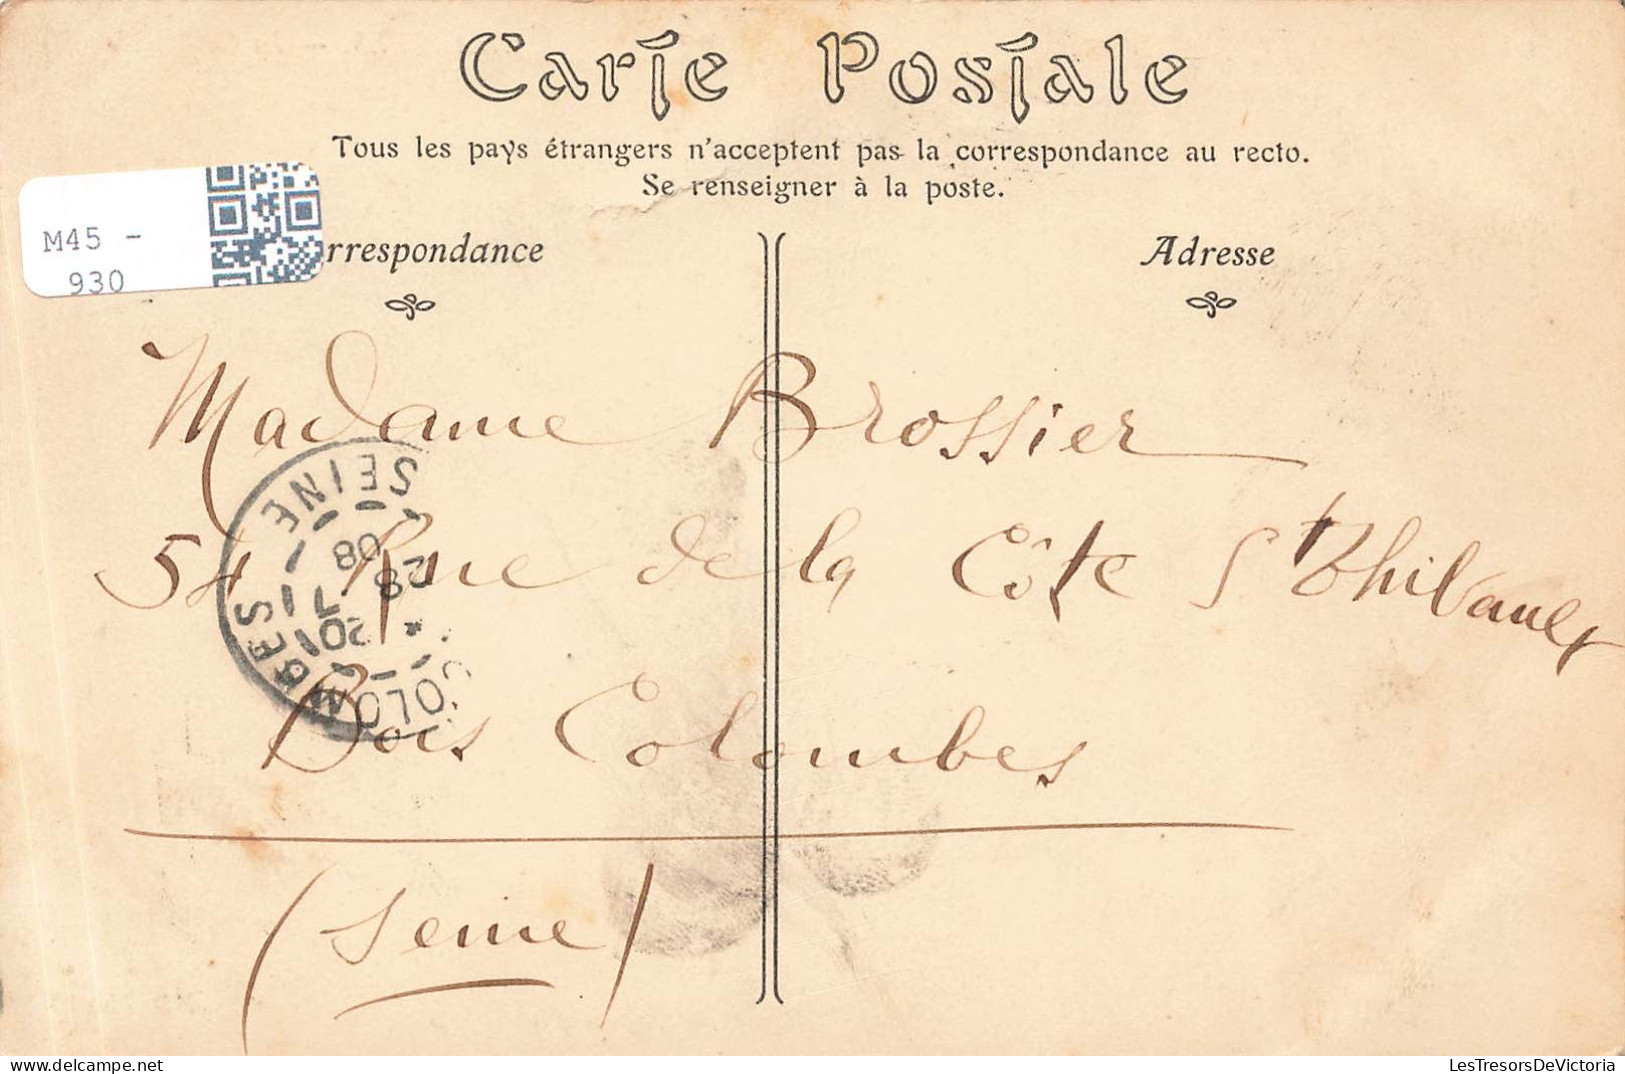 Carte Postale
Tous les pays étrangers n'acceptent pas la correspondance au recto.
Se renseigner à la poste.
M45 -
930
rrespondance
Adresse
Madame Brossier
54 Rue de la Côte St Thibault
Bois Colombes
(Seine)
COLOMBES SEINE
20
28 7
08
LesTresorsDeVictoria